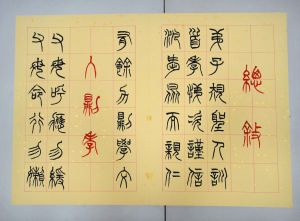 總敘
弟子規聖人訓
首孝悌次謹信
汎愛眾而親仁
有餘力則學文
入則孝
父母呼應勿緩
父母命行勿懶